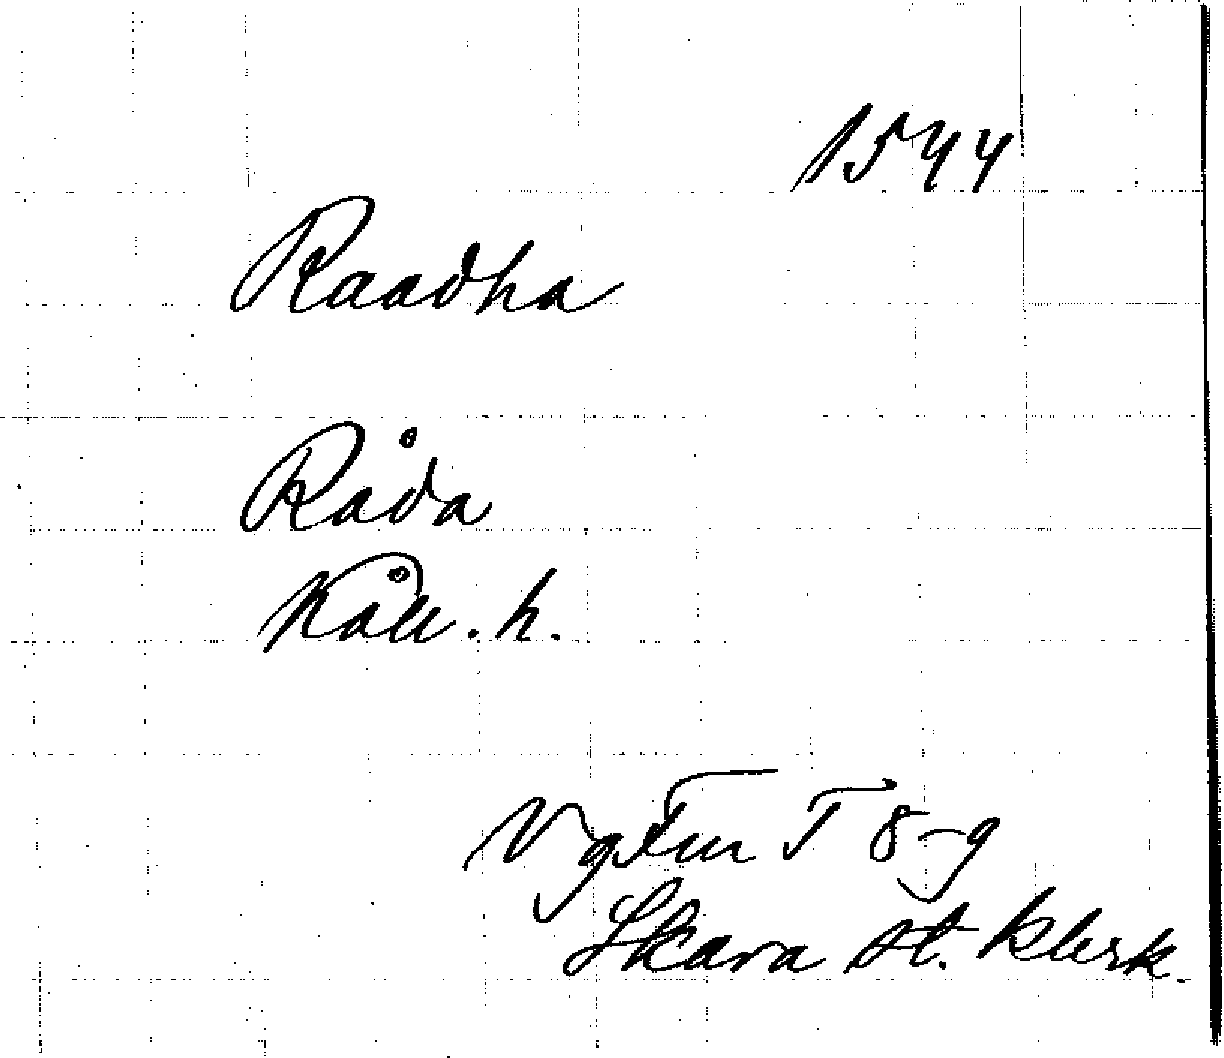 1544
Raadha
Råda
Kåll. h.
VgFm T 8-9
Skara st. klerk.